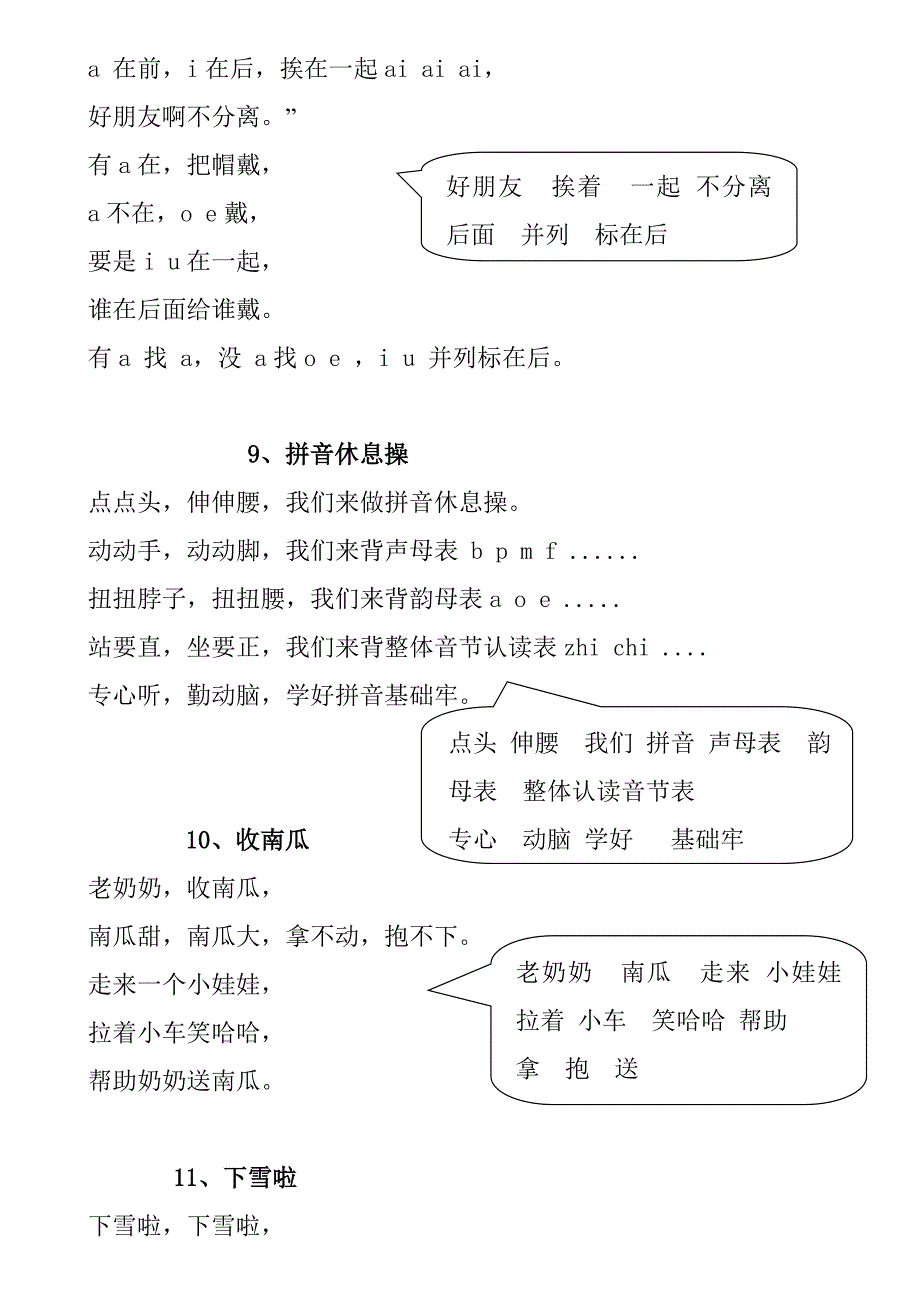 a 在前，i在后，挨在一起ai ai ai，
好朋友啊不分离。”
有a在，把帽戴，
a不在，o e戴，
要是i u在一起，
谁在后面给谁戴。
有a 找 a，没 a找o e ，i u 并列标在后。
好朋友 挨着 一起 不分离
后面 并列 标在后
9、拼音休息操
点点头，伸伸腰，我们来做拼音休息操。
动动手，动动脚，我们来背声母表 b p m f ......
扭扭脖子，扭扭腰，我们来背韵母表a o e .....
站要直，坐要正，我们来背整体音节认读表zhi chi ....
专心听，勤动脑，学好拼音基础牢。
点头 伸腰 我们 拼音 声母表 韵
母表 整体认读音节表
专心 动脑 学好 基础牢
10、收南瓜
老奶奶，收南瓜，
南瓜甜，南瓜大，拿不动，抱不下。
走来一个小娃娃，
拉着小车笑哈哈，
帮助奶奶送南瓜。
老奶奶 南瓜 走来 小娃娃
拉着 小车 笑哈哈 帮助
拿 抱 送
11、下雪啦
下雪啦，下雪啦，